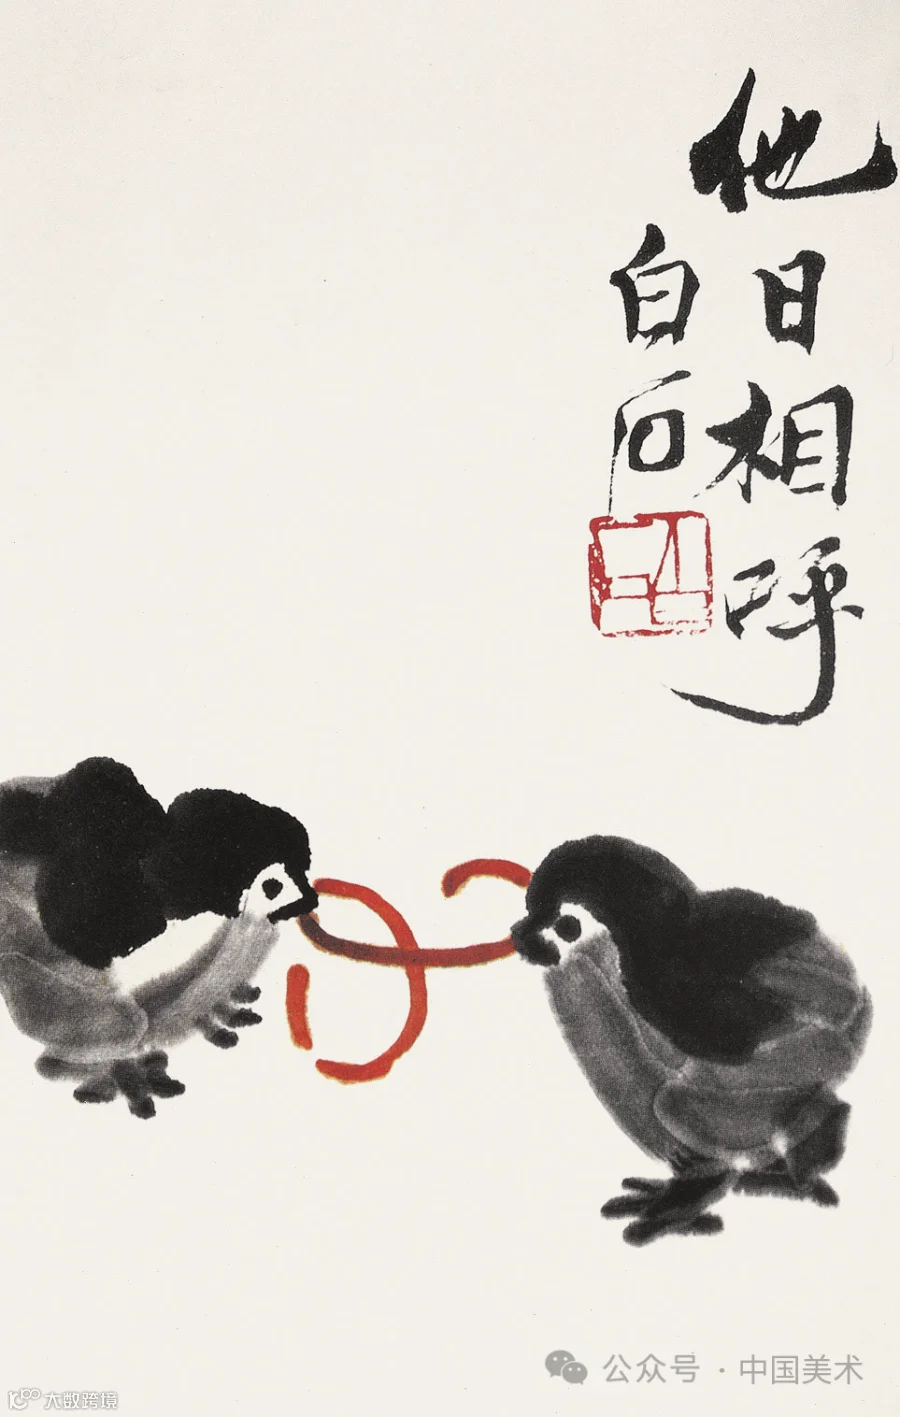 他日相呼
白石
公众号 · 中国美术
大数跨境